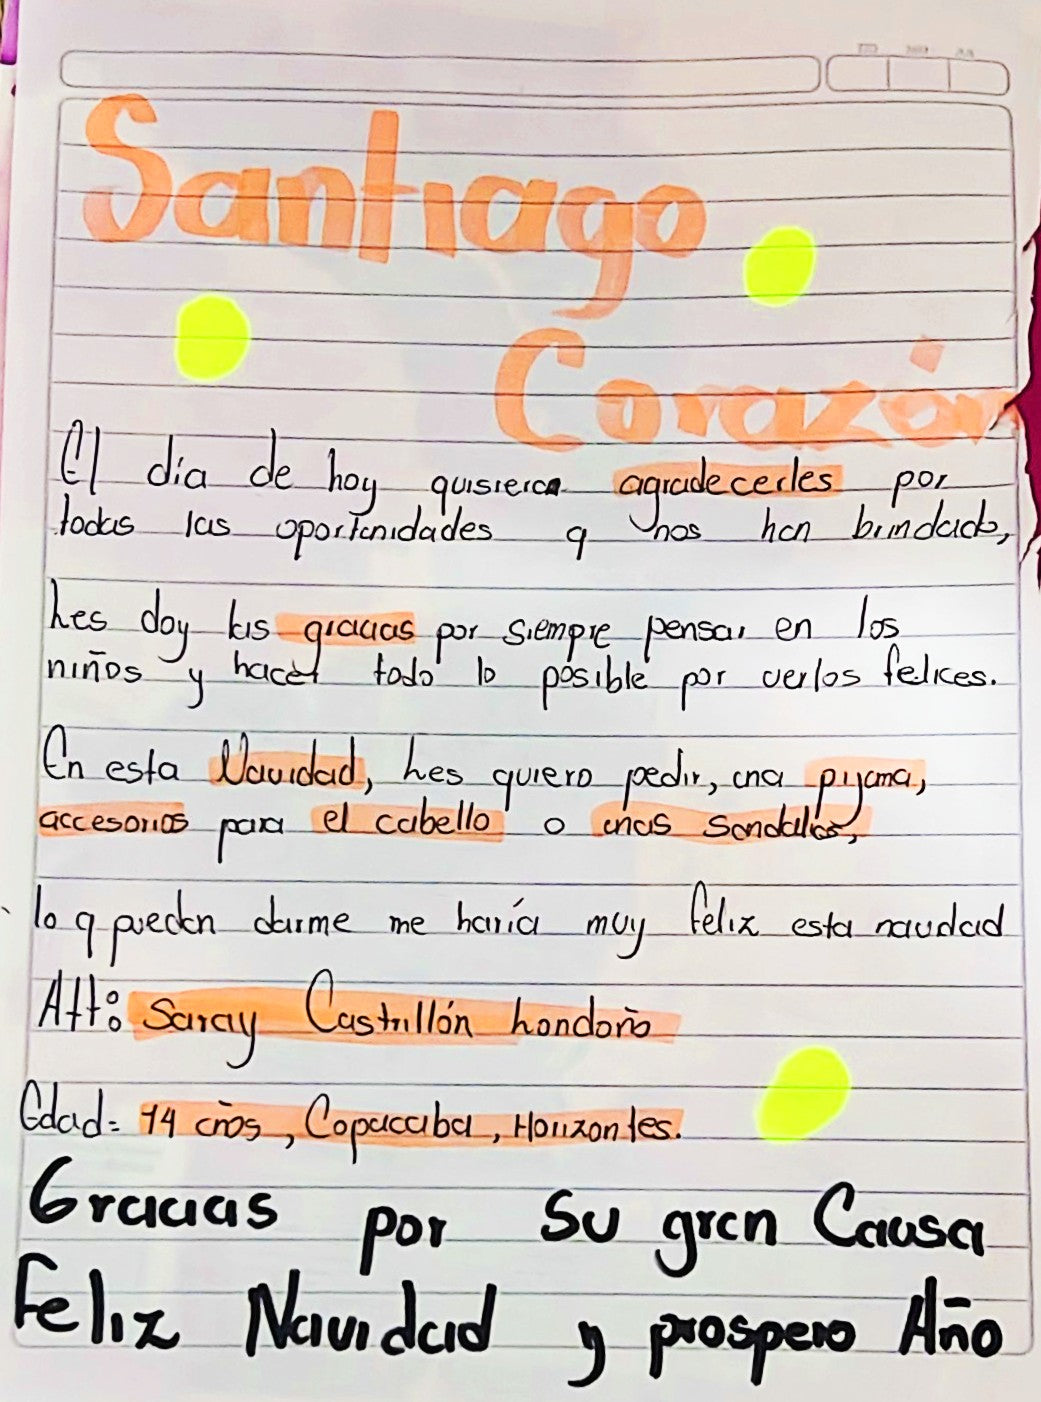 Santiago
Corazón
El día de hoy quisiera agradecerles por
todas las oportunidades q nos han brindado,
Les doy las gracias por siempre pensar en los
niños y hacer todo lo posible por verlos felices.
En esta Navidad, Les quiero pedir, una pijama,
accesorios para el cabello o unas sandalias,
lo q puedan darme me haría muy feliz esta navidad
Att: Saray Castrillón Londoño
Edad= 14 años, Copacaba, Horizontes.
Gracias por su gran Causa
Feliz Navidad y prospero Año